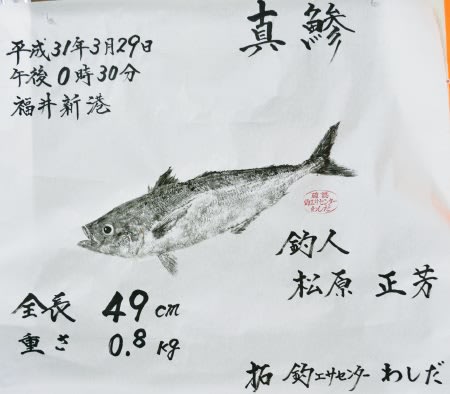 真鯵
平成31年3月29日
午後0時30分
福井新港
釣人
松原 正芳
全長 49cm
重さ 0.8kg
拓 釣エサセンターわしだ